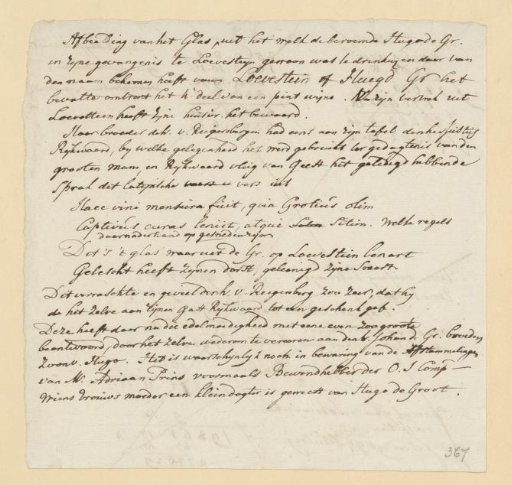 Afbeelding van het Glas, uit het welk de beroemde Hugo de Gr.
in zijne gevangenis te Loevestein gewoon was te drinken en daar van
den naam bekomen heeft Loevestein of Hueg d Gr het
bevatte omtrent het ¼ deel van een pint wijns. Na zijn vertrek uit
Loevestein heeft zijne huisvr. het bewaard.
Haar broeder de h. v. Reigersbergen had eens aan zijn tafel den heer Justus
Rijkwaard, by welke gelegenheid het werd gebracht ter gedagtenis van den
grooten man en Rijkwaard vloeg van Geest het getuigd hebbende
sprak dit Latynsche vers uit
Haec vini mensura fuit, quia Grotius olim
Captivus curas leniit, atque Sitim. Welke regels
daar naderhand op gesneden zijn
Dit 's 't glas waar uit de Gr. op Loevestein benart
Gelescht heeft zijnen dorst, gelenigd zijne smart.
Dit verraschte en geviel de h. v. Reigersberg zoo zeer, dat hy
de het zelve aan zijnen Gast Rijkwaard, tot een geschenk gaf.
Deze heeft daar na die edelmoedigheid met eene even zoo groote
beantwoord, door het zelve wederom te vereeren aan de h. Johan d Gr. broeder
Zoon v. Hugo. Het is waarschynlyk noch in bewaring van de Afstammelingen
van Mr. Adriaan Prins voormaals Bewindhebber der O. I Comp
wiens vrouws moeder een kleindogter is geweest van Hugo de Groot.
367